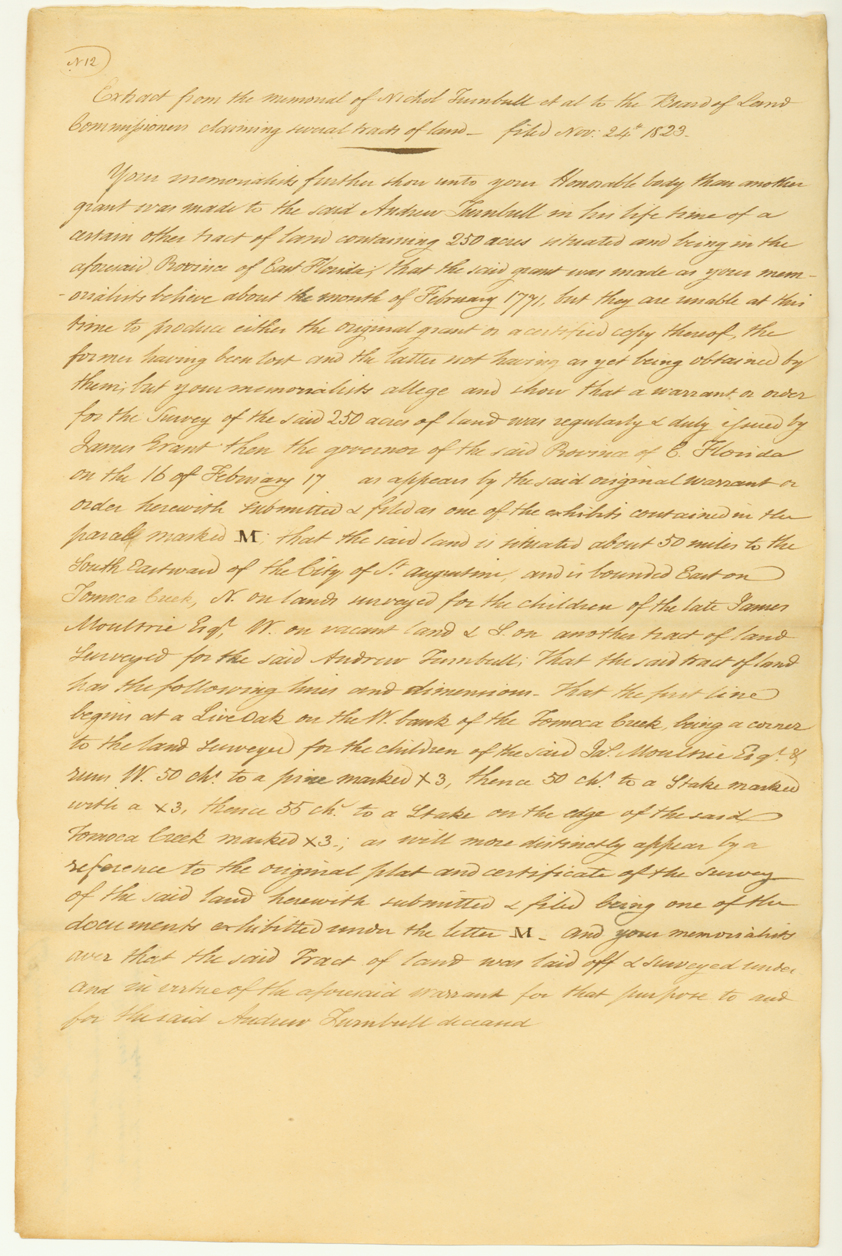 N 12
Extract from the memorial of Nichol Turnbull et al to the Board of Land
Commissioners claiming several tracts of land – filed Nov: 24th 1823–
Your memorialists further show unto your Honorable body than another
grant was made to the said Andrew Turnbull in his life time of a
certain other tract of land containing 250 acres situated and being in the
aforesaid Province of East Florida; that the said grant was made as your mem-
-orialists believe about the month of February 1771, but they are unable at this
time to produce either the original grant or a certified copy thereof, the
former having been lost and the latter not having as yet being obtained by
them; but your memorialists allege and show that a warrant or order
for the survey of the said 250 acres of land was regularly & duly issued by
James Grant then the governor of the said Province of E. Florida
on the 16 of February 17 as appears by the said original warrant or
order herewith submitted & filed as one of the exhibits contained in the
marked M; that the said land is situated about 50 miles to the
South Eastward of the City of St. Augustine, and is bounded East on
Tomoca Creek, N. on lands surveyed for the children of the late James
Moultrie Esqr, W. on vacant land & S. on another tract of land
surveyed for the said Andrew Turnbull; That the said tract of land
has the following lines and dimensions – that the first line
begins at a Live Oak on the W. bank of the Tomoca Creek, being a corner
to the land surveyed for the children of the said Jas. Moultrie Esqr. &
runs W. 50 chs. to a pine marked X3, thence 50 chs. to a Stake marked
with a X3, thence 55 chs. to a Stake on the edge of the said
Tomoca Creek marked X3.; as will more distinctly appear by a
reference to the original plat and certificate of the survey
of the said land herewith submitted & filed being one of the
documents exhibitted under the letter M – and your memorialists
aver that the said Tract of land was laid off & surveyed under
and in virtue of the aforesaid warrant for that purpose to and
for the said Andrew Turnbull deceased